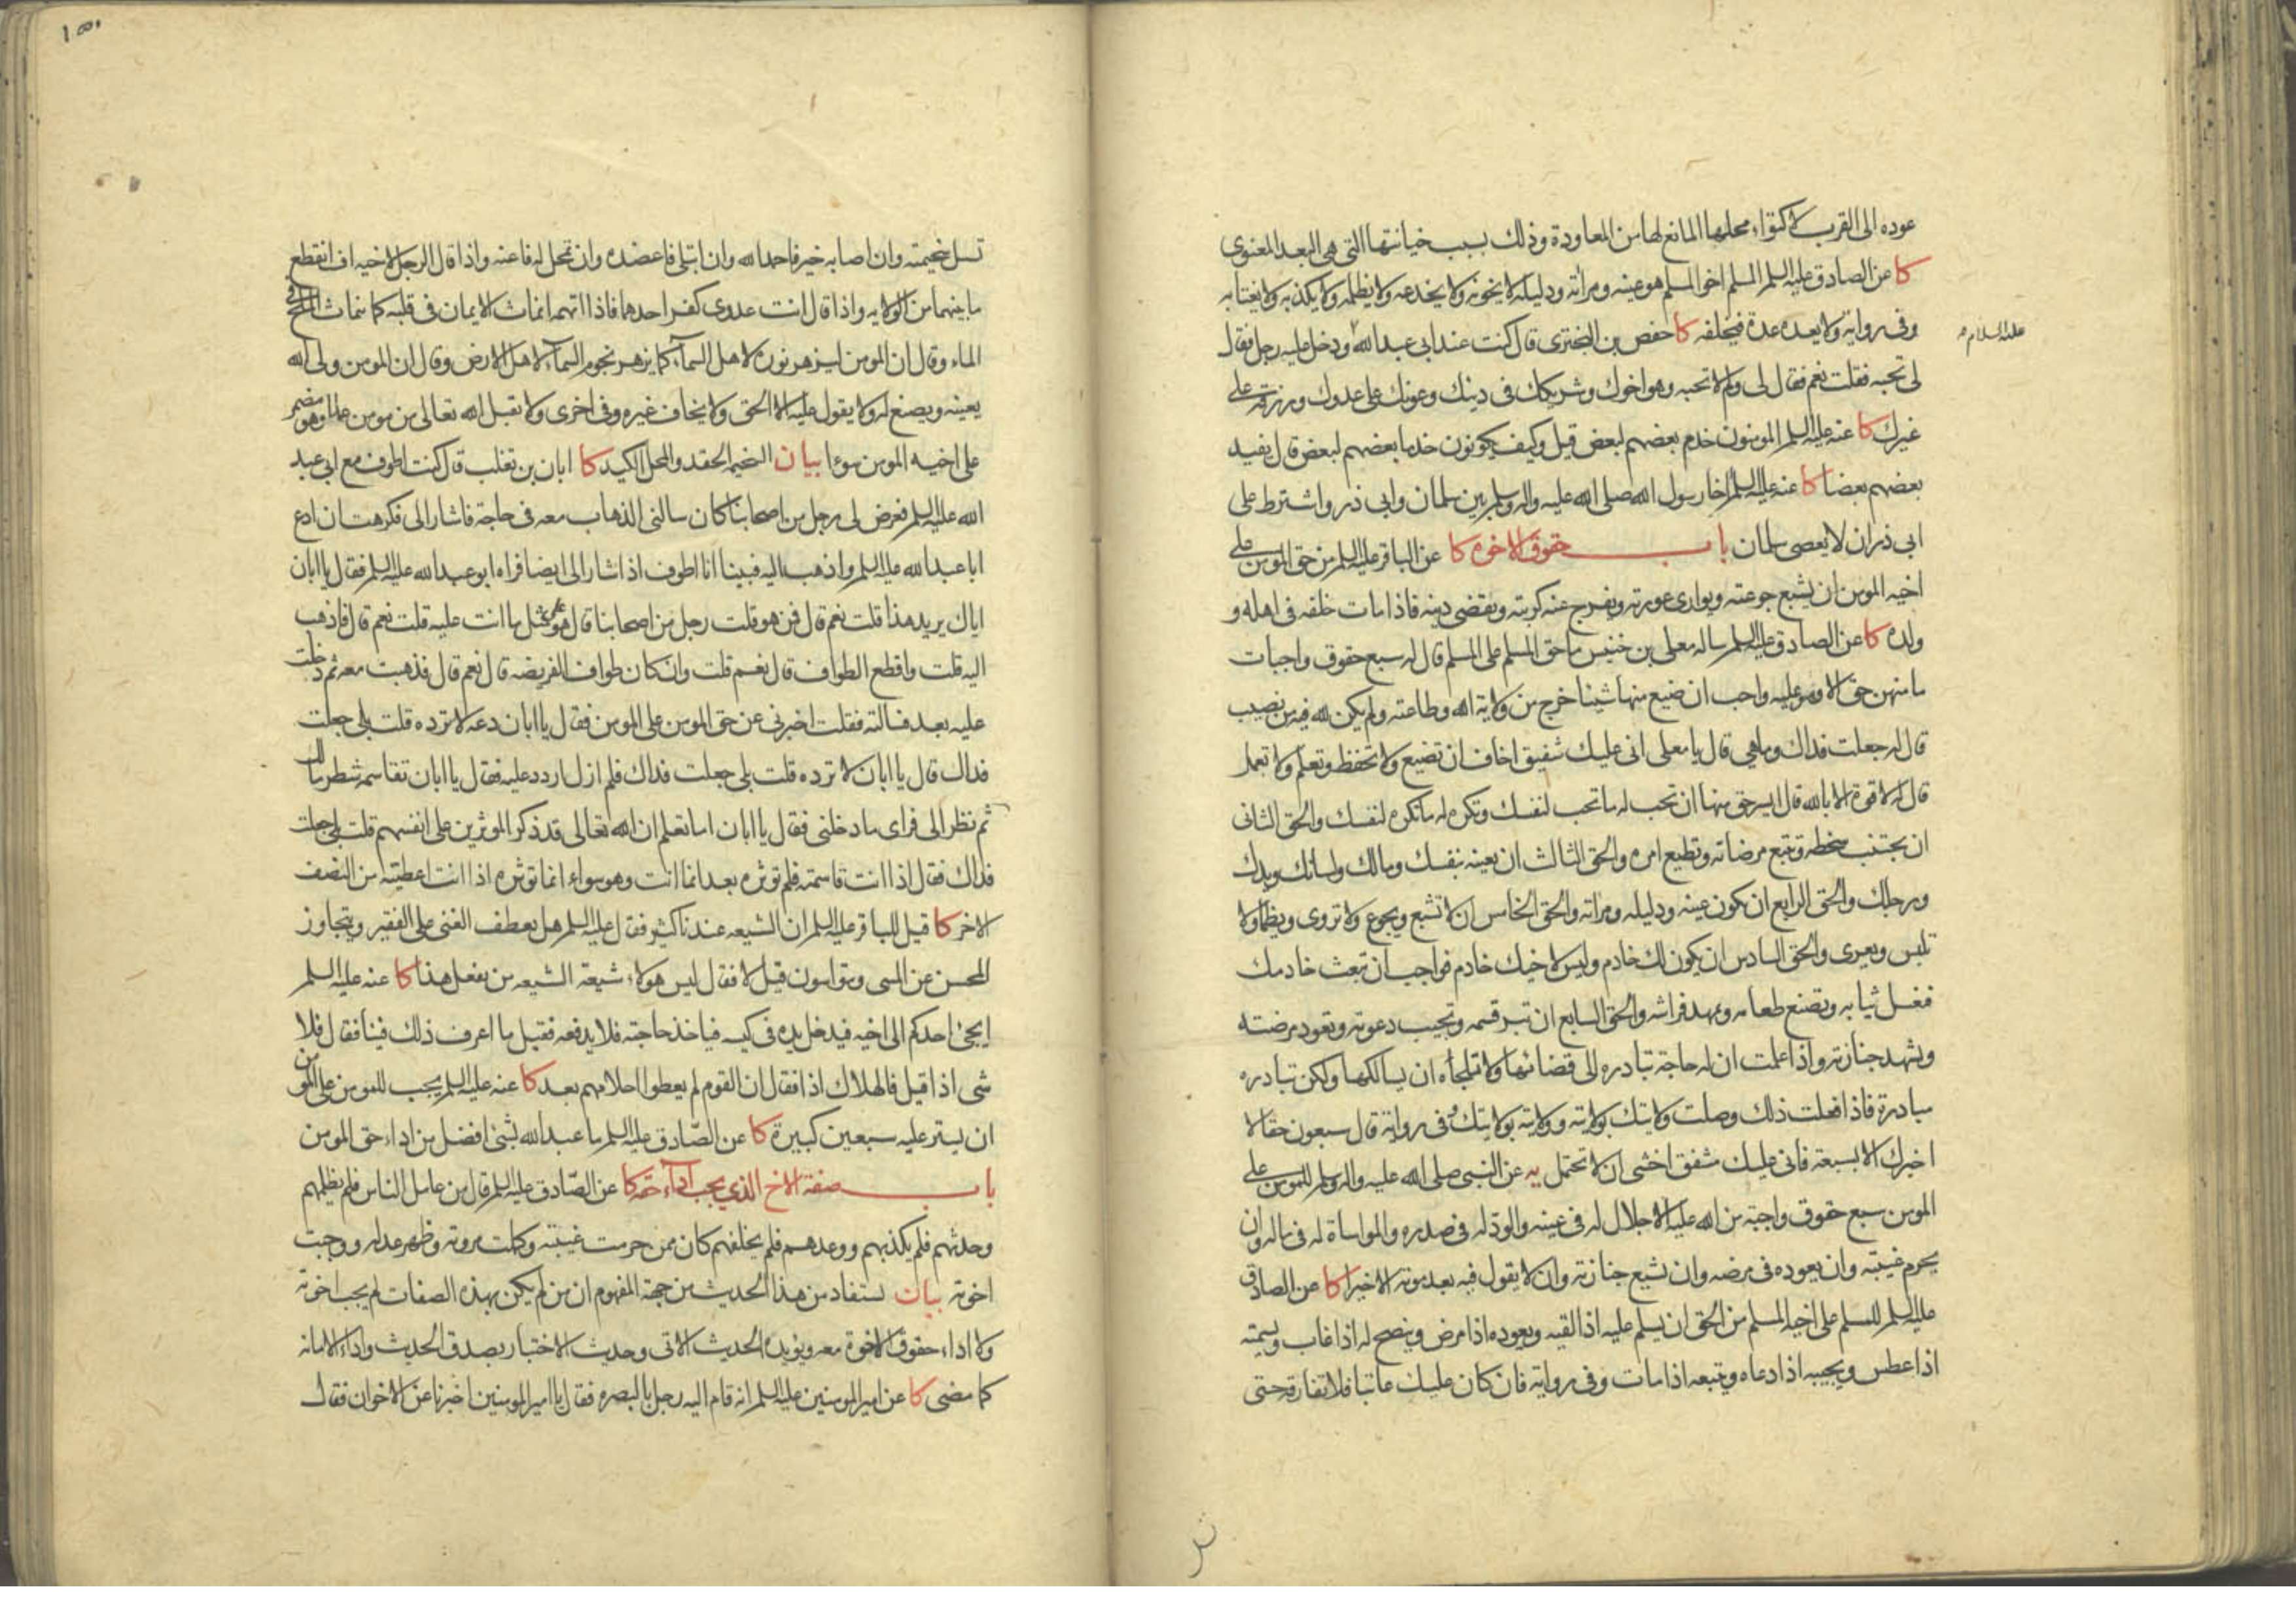 عوده الى القرب لاكتواء محلها المانع لها من المعاودة وذلك بسبب خيانتها التى هى البعد المعنوى
كا عن الصادق عليه السلم المسلم اخو المسلم هو عينه ومراته ودليله لا يخونه ولا يخدعه ولا يظلمه ولا يكذبه ولا يغتابه
وفى رواية ولا يعده عدة فيخلفه كا حفص بن البخترى قال كنت عند ابى عبد الله ودخل عليه رجل فقال
عليه السلام
لى تحبه فقلت نعم فقال لى ولم لا تحبه وهو اخوك وشريكك فى دينك وعونك على عدوك ورزقه على
غيرك كا عنه عليه السلم المومنون خدم بعضهم لبعض قيل وكيف يكونون خدما بعضهم لبعض قال يفيد
بعضهم بعضا كا عنه عليه السلم اخا رسول الله صلى الله عليه واله وسلم بين سلمان وابى ذر واشترط على
ابى ذر ان لا يعصى سلمان باب حقوق الاخوه كا عن الباقر عليه السلم من حق المومن على
اخيه المومن ان يشبع جوعته ويوارى عورته ويفرج عنه كربته ويقضى دينه فاذا مات خلفه فى اهله و
ولده كا عن الصادق عليه السلم ساله معلى بن خنيس ما حق المسلم على المسلم قال له سبع حقوق واجبات
ما منهن حق الا وهو عليه واجب ان ضيع منها شيئا خرج من ولاية الله وطاعته ولم يكن لله فيه من نصيب
قال له جعلت فداك وما هى قال يا معلى انى عليك شفيق اخاف ان تضيع ولا تحفظ وتعلم ولا تعمل
قال له لا قوة الا بالله قال ايسر حق منها ان تحب له ما تحب لنفسك وتكره له ما تكره لنفسك والحق الثانى
ان تجتنب سخطه وتتبع مرضاته وتطيع امره والحق الثالث ان تعينه بنفسك ومالك ولسانك ويدك
ورجلك والحق الرابع ان تكون عينه ودليله ومراته والحق الخامس ان لا تشبع ويجوع ولا تروى ويظما ولا
تلبس ويعرى والحق السادس ان يكون لك خادم وليس لاخيك خادم فواجب ان تبعث خادمك
فغسل ثيابه ويصنع طعامه ويمهد فراشه والحق السابع ان تبر قسمه وتجيب دعوته وتعود مرضته
وتشهد جنازته واذا علمت ان له حاجة تبادره الى قضائها ولا تلجأه ان يسالكها ولكن تبادره
مبادرة فاذا فعلت ذلك وصلت ولايتك بولايته وولايته بولايتك وفى رواية قال سبعون حقا لا
اخبرك الا بسبعة فانى عليك مشفق اخشى ان لا تحتمل يه عن النبى صلى الله عليه واله وسلم للمومن على
المومن سبع حقوق واجبة من الله عليه الاجلال له فى عينه والود له فى صدره والمواساة له فى ماله وان
يحرم غيبته وان يعوده فى مرضه وان تشيع جنازته وان لا يقول فيه بعد موته الا خيرا كا عن الصادق
عليه السلم للمسلم على اخيه المسلم من الحق ان يسلم عليه اذا لقيه ويعوده اذا مرض وينصح له اذا غاب ويسمته
اذا عطس ويجيبه اذا دعاه ويتبعه اذا مات وفى رواية فان كان عليك عاتبا فلا تفارقه حتى
تسل سخيمته وان اصابه خير فاحمد الله وان ابتلى فاعضده وان تمحل له فاعنه واذا قال الرجل لاخيه اف انقطع
ما بينهما من الولايه واذا قال انت عدوى كفر احدهما فاذا اتهمه انماث الايمان فى قلبه كما ينماث الملح فى
الماء وقال ان المومن ليزهر نوره لاهل السماء كما يزهر نجوم السماء لاهل الارض وقال ان المومن ولى الله
يعينه ويصنع له ولا يقول عليه الا الحق ولا يخاف غيره وفى اخرى ولا يقبل الله تعالى من مومن عملا وهو مضمر
على اخيه المومن سوءا بيان السخيمة الحقد والمحل الكيد كا ابان بن تغلب قال كنت اطوف مع ابى عبد
الله عليه السلم فعرض لى رجل من اصحابنا كان سالنى الذهاب معه فى حاجة فاشار الى فكرهت ان ادع
ابا عبد الله عليه السلم واذهب اليه فبينا انا اطوف اذ اشار الى ايضا فراه ابو عبد الله عليه السلم فقال يا ابان
اياك يريد هذا قلت نعم قال فمن هو قلت رجل من اصحابنا قال هو على مثل ما انت عليه قلت نعم قال فاذهب
اليه قلت واقطع الطواف قال نعم قلت وان كان طواف الفريضه قال نعم قال فذهبت معه ثم دخلت
عليه بعد فسالته فقلت اخبرنى عن حق المومن على المومن فقال يا ابان دعه لا ترده قلت بلى جعلت
فداك قال يا ابان لا ترده قلت بلى جعلت فداك فلم ازل اردد عليه فقال يا ابان تقاسمه شطر مالك
ثم نظر الى فراى ما دخلنى فقال يا ابان اما تعلم ان الله تعالى قد ذكر الموثرين على انفسهم قلت بلى جعلت
فداك فقال اذا انت قاسمته فلم توثره بعد انما انت وهو سواء انما توثره اذا انت اعطيته من النصف
الاخر كا قيل للباقر عليه السلم ان الشيعه عندنا كثير فقال عليه السلم هل يعطف الغنى على الفقير ويتجاوز
المحسن عن المسى ويتواسون قيل لا فقال ليس هولاء شيعة الشيعه من يفعل هذا كا عنه عليه السلم
ايجئ احدكم الى اخيه فيدخل يده فى كيسه فياخذ حاجته فلا يدفعه فقيل ما اعرف ذلك فينا فقال فلا
شى اذا قيل فالهلاك اذا فقال ان القوم لم يعطوا احلامهم بعد كا عنه عليه السلم يجب للمومن على المومن
ان يستر عليه سبعين كبيرة كا عن الصادق عليه السلم ما عبد الله بشئ افضل من اداء حق المومن
باب صفة الاخ الذي يجب اداء حقه كا عن الصادق عليه السلم قال من عامل الناس فلم يظلمهم
وحدثهم فلم يكذبهم ووعدهم فلم يخلفهم كان ممن حرمت غيبته وكملت مروته وظهر عدله ووجبت
اخوته بيان يستفاد من هذا الحديث من جهة المفهوم ان من لم يكن بهذه الصفات لم يجب اخوته
ولا اداء حقوق الاخوة معه ويؤيده الحديث الاتى وحديث الاختبار بصدق الحديث واداء الامانه
كما مضى كا عن امير المومنين عليه السلم انه قام اليه رجل بالبصره فقال يا امير المومنين اخبرنا عن الاخوان فقال